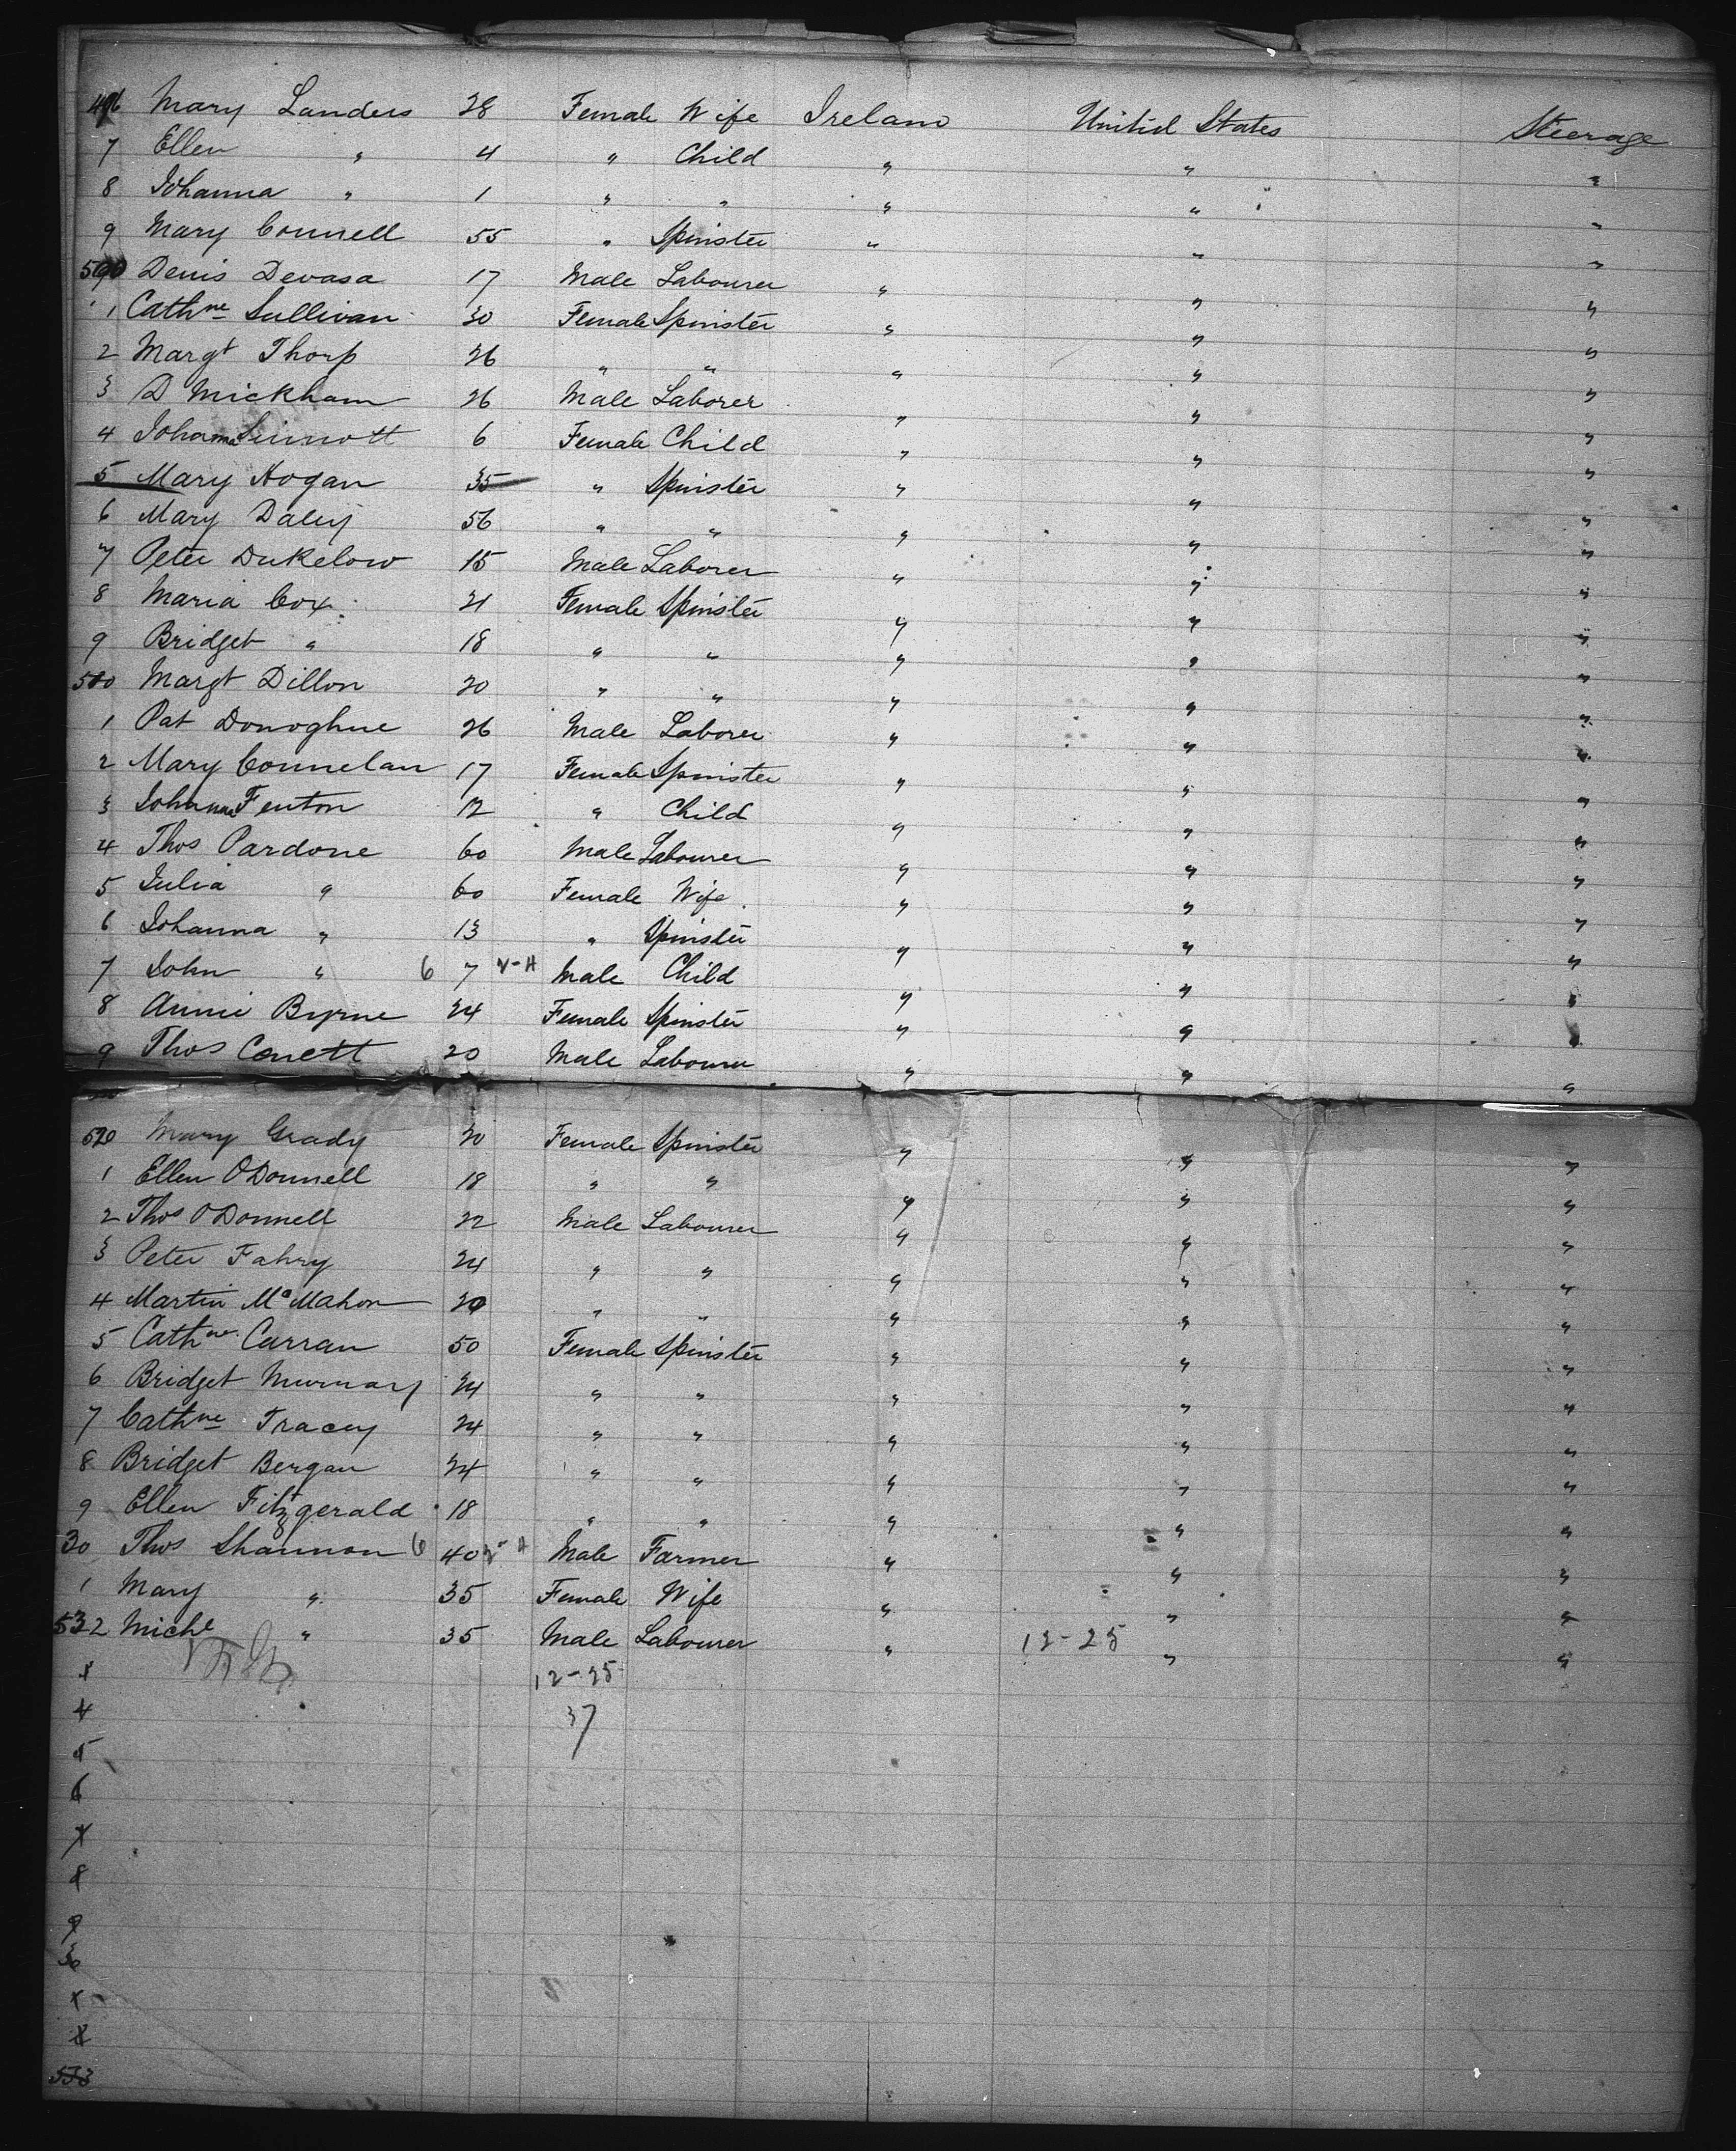 496 Mary Landers 28 Female Wife Ireland United States Steerage
7 Ellen " 4 " Child " " "
8 Johanna " 1 " " " " "
9 Mary Connell 55 " Spinster " " "
500 Denis Devasa 17 Male Labourer " " "
1 Cathne Sullivan 30 Female Spinster " " "
2 Margt Thorp 26 " " " " "
3 D Mickham 26 Male Laborer " " "
4 Johanna Sinnott 6 Female Child " " "
5 Mary Hogan 35 " Spinster " " "
6 Mary Daley 56 " " " " "
7 Peter Dukelow 15 Male Laborer " " "
8 Maria Cox 21 Female Spinster " " "
9 Bridget " 18 " " " " "
510 Margt Dillon 20 " " " " "
1 Pat Donoghue 26 Male Laborer " " "
2 Mary Connelan 17 Female Spinster " " "
3 Johanna Fenton 12 " Child " " "
4 Thos Pardone 60 Male Labourer " " "
5 Julia " 60 Female Wife " " "
6 Johanna " 13 " Spinster " " "
7 John " 6 7 Male Child " " "
8 Annie Byrne 24 Female Spinster " " "
9 Thos 20 Male Labourer " " "
520 Mary Grady 30 Female Spinster " " "
1 Ellen O'Donnell 18 " " " " "
2 Thos O'Donnell 22 Male Labourer " " "
3 Peter Fahry 24 " " " " "
4 Martin McMahon 20 " " " " "
5 Cathne Curran 50 Female Spinster " " "
6 Bridget 24 " " " " "
7 Cathne Tracey 24 " " " " "
8 Bridget Bergan 24 " " " " "
9 Ellen Fitzgerald 18 " " " " "
30 Thos Shannon 6 40 Male Farmer " " "
1 Mary " 35 Female Wife " " "
532 Michl " 35 Male Labourer " 12-25 " "
12-25
4 37
5
6
7
8
9
30
533